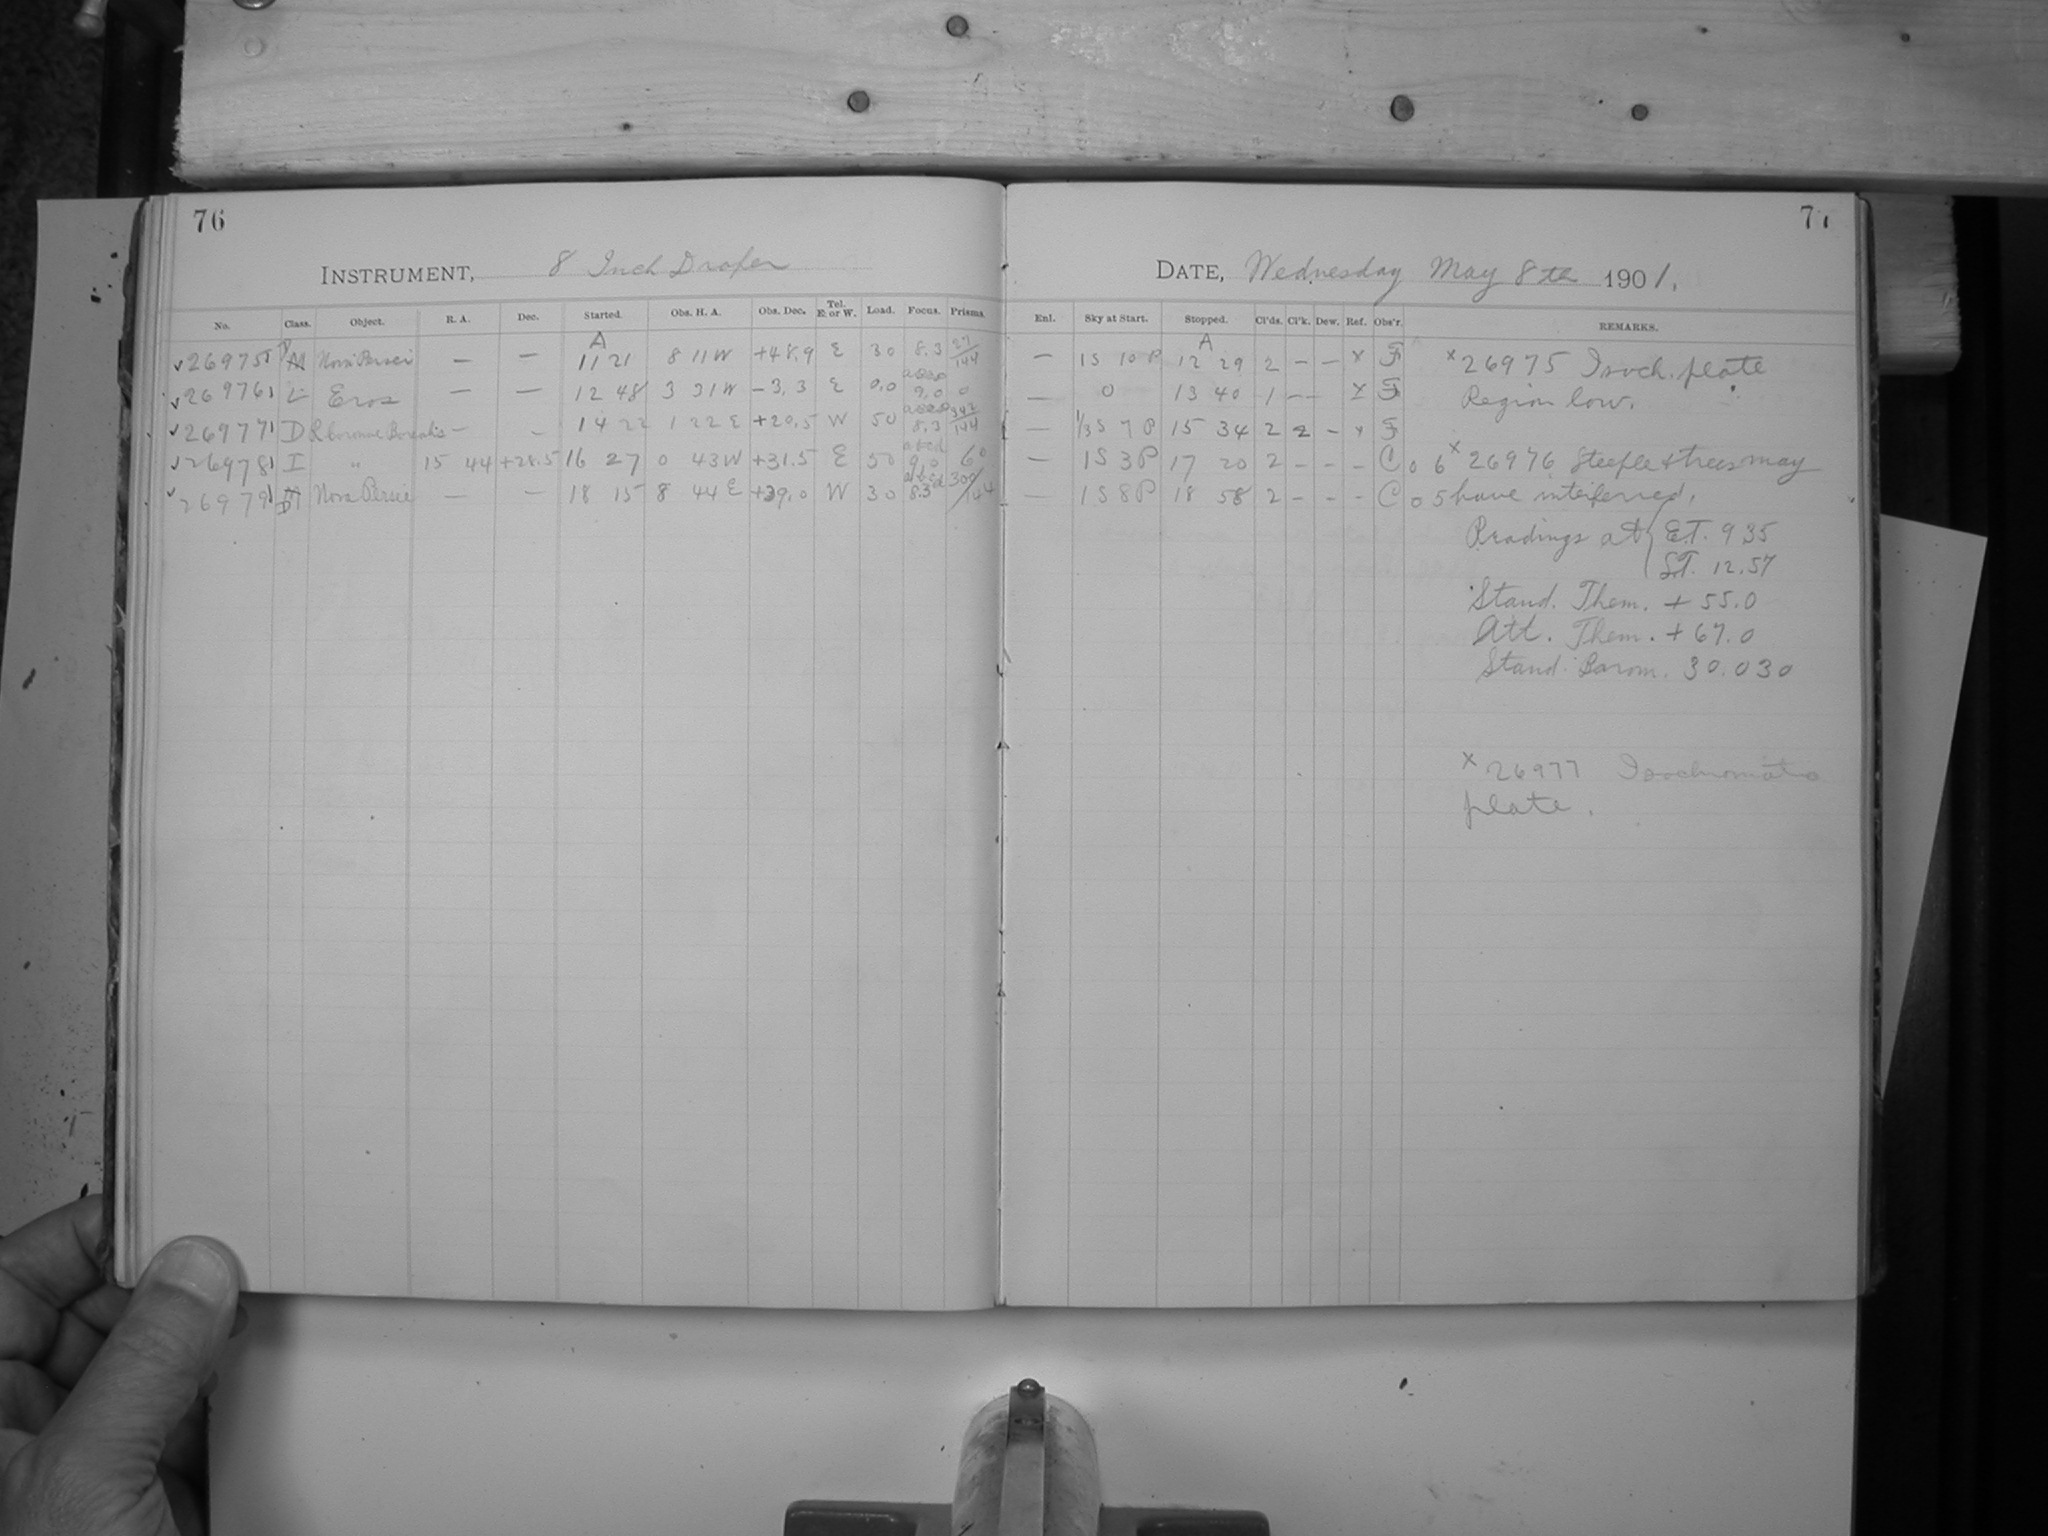 76
INSTRUMENT, 8 Inch Draper
No. Class. Object. R. A. Dec. Started. Obs. H. A. Obs. Dec. Tel. E. or W. Load. Focus. Prisms.
A
26975 Nova Persei — — 11 21 8 11 W +48.9 E 30 8.3 27/144
26976 Eros — — 12 48 3 31 W −3.3 E 0.0 9.0 0
26977 D R Coronae Borealis — – 14 22 1 22 E +20.5 W 50 8.3 342/144
26978 I " 15 44 +28.5 16 27 0 43 W +31.5 E 50 abcd 9.0 60
26979 Nova Persei — — 18 15 8 44 E +39.0 W 30 abcd 8.3 /144
77
DATE, Wednesday May 8th 1901.
Enl. Sky at Start. Stopped. Cl'ds. Cl'k. Dew. Ref. Obs'r. REMARKS.
A
— 1S 10P 12 29 2 – – x F x 26975 Isoch. plate
Region low.
— 0 13 40 1 – – x F
— 1/3S 7P 15 34 2 2 – x F
— 1S 3P 17 20 2 – – – C 06 x 26976 Steeple & trees may
— 1S 8P 18 58 2 – – – C 05 have interferred.
Readings at { E.T. 9 35
S.T. 12.57
Stand. Them. + 55.0
Att. Them. + 67.0
Stand. Barom. 30.030
x 26977 Isochromatic
plate.